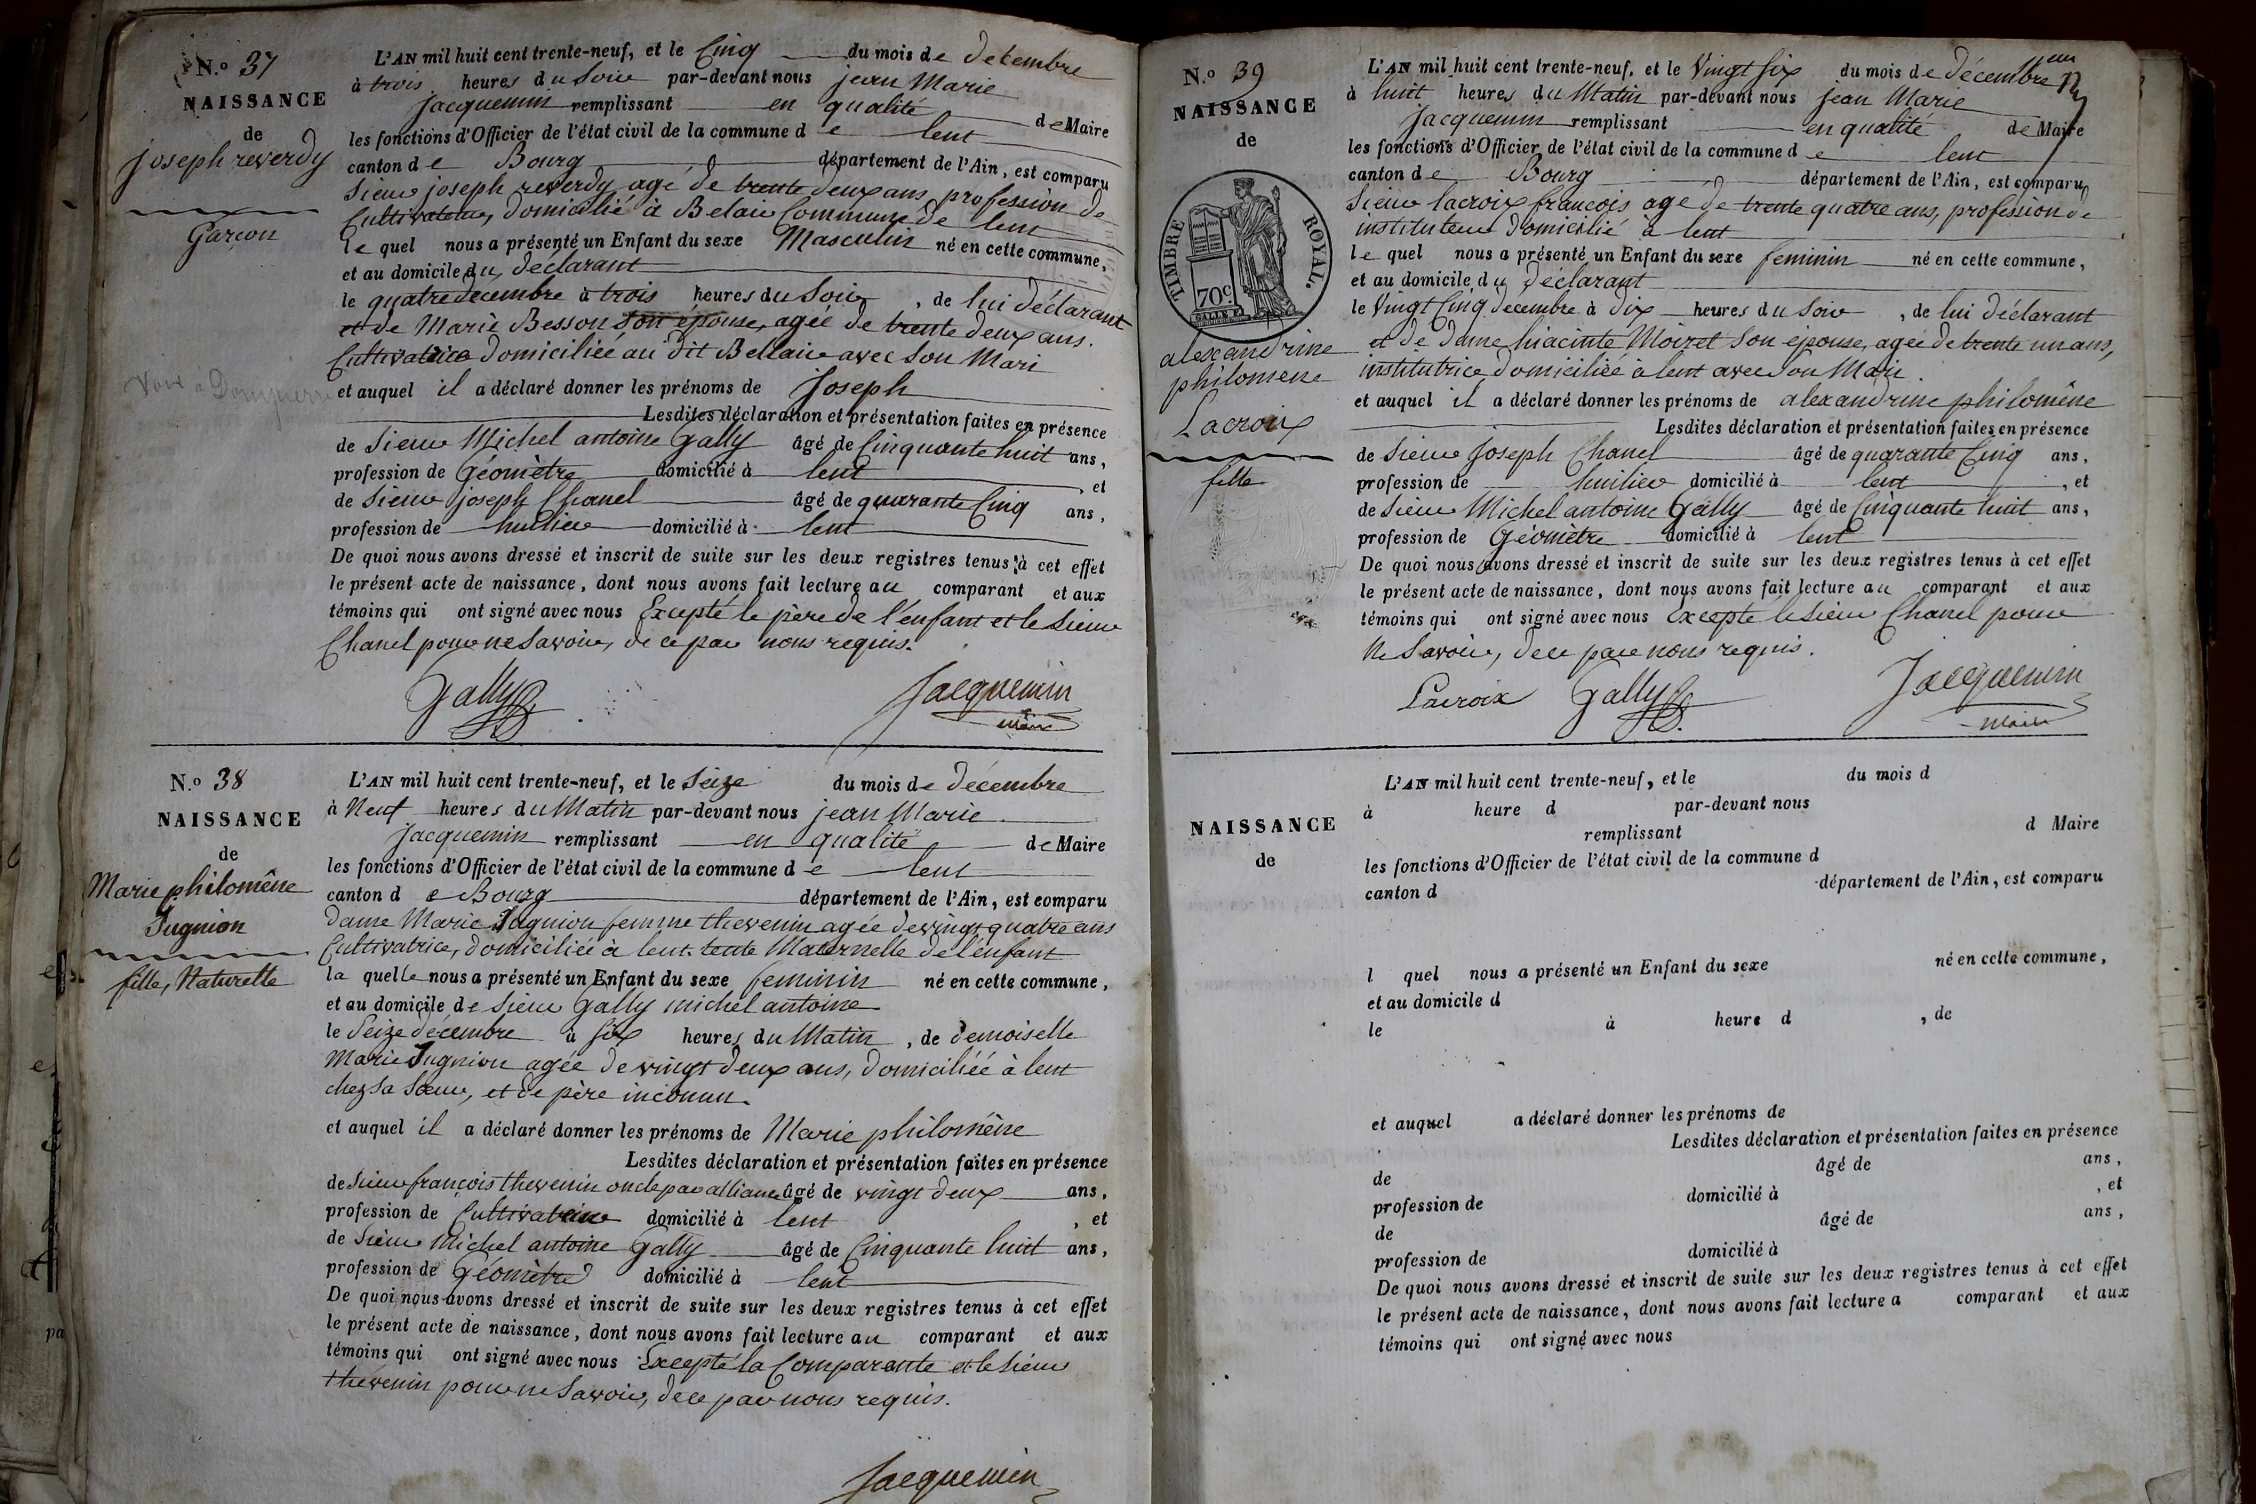 N.o 37
NAISSANCE
de
joseph reverdy
Garcon
L'AN mil huit cent trente-neuf, et le Cinq du mois de decembre
à trois heures du Soir par-devant nous jean Marie
Jacquemin remplissant en qualité de Maire
les fonctions d'Officier de l'état civil de la commune de lent
canton de Bourg département de l'Ain, est comparu
Sieur joseph reverdy agé de trente deux ans, profession de
Cultivateur, domicilié à Belair Commune de lent
le quel nous a présenté un Enfant du sexe Masculin né en cette commune,
et au domicile du déclarant
le quatre decembre à trois heures du Soir, de lui déclarant
et de Marie Besson Son épouse, agée de trente deux ans.
Cultivatrice domiciliée au dit Bellair avec Son Mari
et auquel il a déclaré donner les prénoms de Joseph
Lesdites déclaration et présentation faites en présence
de Sieur Michel antoine Gally âgé de Cinquante huit ans,
profession de Géomètre domicilié à lent, et
de Sieur joseph Chanel âgé de quarante Cinq ans,
profession de huilier domicilié à lent
De quoi nous avons dressé et inscrit de suite sur les deux registres tenus à cet effet
le présent acte de naissance, dont nous avons fait lecture au comparant et aux
témoins qui ont signé avec nous Excepté le père de l'enfant et le Sieur
Chanel pour ne Savoir, de ce par nous requis.
Gally Jacquemin
Maire
N.o 38
NAISSANCE
de
Marie philomêne
Jugnion
fille, Naturelle
L'AN mil huit cent trente-neuf, et le Seize du mois de décembre
à Neuf heures du Matin par-devant nous jean Marie
Jacquemin remplissant en qualité de Maire
les fonctions d'Officier de l'état civil de la commune de lent
canton de Bourg département de l'Ain, est comparu
dame Marie Jugnion femme thevenin agée de vingt quatre ans
Cultivatrice, domiciliée à lent. tente Maternelle de l'enfant
la quelle nous a présenté un Enfant du sexe feminin né en cette commune,
et au domicile de Sieur Gally michel antoine
le Seize décembre à Six heures du Matin, de demoiselle
Marie Jugnion agée de vingt deux ans, domiciliéé à lent
chez Sa Sœur, et de père inconnu.
et auquel il a déclaré donner les prénoms de Marie philomêne
Lesdites déclaration et présentation faites en présence
de Sieur françois thevenin oncle par alliance âgé de vingt deux ans,
profession de Cultivateur domicilié à lent, et
de Sieur Michel antoine Gally âgé de Cinquante huit ans,
profession de Géomètre domicilié à lent
De quoi nous avons dressé et inscrit de suite sur les deux registres tenus à cet effet
le présent acte de naissance, dont nous avons fait lecture au comparant et aux
témoins qui ont signé avec nous Excepté la Comparante et le Sieur
thevenin pour ne Savoir, de ce par nous requis.
Jacquemin
N.o 39
NAISSANCE
de
TIMBRE ROYAL.
70c.
alexandrine
philomene
Lacroix
fille
L'AN mil huit cent trente-neuf, et le Vingt Six du mois de décembre
à huit heures du Matin par-devant nous jean Marie
Jacquemin remplissant en qualité de Maire
les fonctions d'Officier de l'état civil de la commune de lent
canton de Bourg département de l'Ain, est comparu
Sieur lacroix francois agé de trente quatre ans, profession de
instituteur domicilié à lent
le quel nous a présenté un Enfant du sexe feminin né en cette commune,
et au domicile du déclarant
le Vingt Cinq decembre à dix heures du Soir, de lui déclarant
et de dame hiacinte Moiret Son épouse, agée de trente un ans,
institutrice domiciliéé à lent avec Son Mari.
et auquel il a déclaré donner les prénoms de alexandrine philomêne
Lesdites déclaration et présentation faites en présence
de Sieur Joseph Chanel âgé de quarante Cinq ans,
profession de huilier domicilié à lent, et
de Sieur Michel antoine Gally âgé de Cinquante huit ans,
profession de Géomètre domicilié à lent
De quoi nous avons dressé et inscrit de suite sur les deux registres tenus à cet effet
le présent acte de naissance, dont nous avons fait lecture au comparant et aux
témoins qui ont signé avec nous Excepté le Sieur Chanel pour
ne Savoir, de ce par nous requis.
Lacroix Gally Jacquemin
Maire
NAISSANCE
de
L'AN mil huit cent trente-neuf, et le du mois d
à heure d par-devant nous
remplissant d Maire
les fonctions d'Officier de l'état civil de la commune d
canton d département de l'Ain, est comparu
l quel nous a présenté un Enfant du sexe né en cette commune,
et au domicile d
le à heure d , de
et auquel a déclaré donner les prénoms de
Lesdites déclaration et présentation faites en présence
de âgé de ans,
profession de domicilié à , et
de âgé de ans,
profession de domicilié à
De quoi nous avons dressé et inscrit de suite sur les deux registres tenus à cet effet
le présent acte de naissance, dont nous avons fait lecture a comparant et aux
témoins qui ont signé avec nous